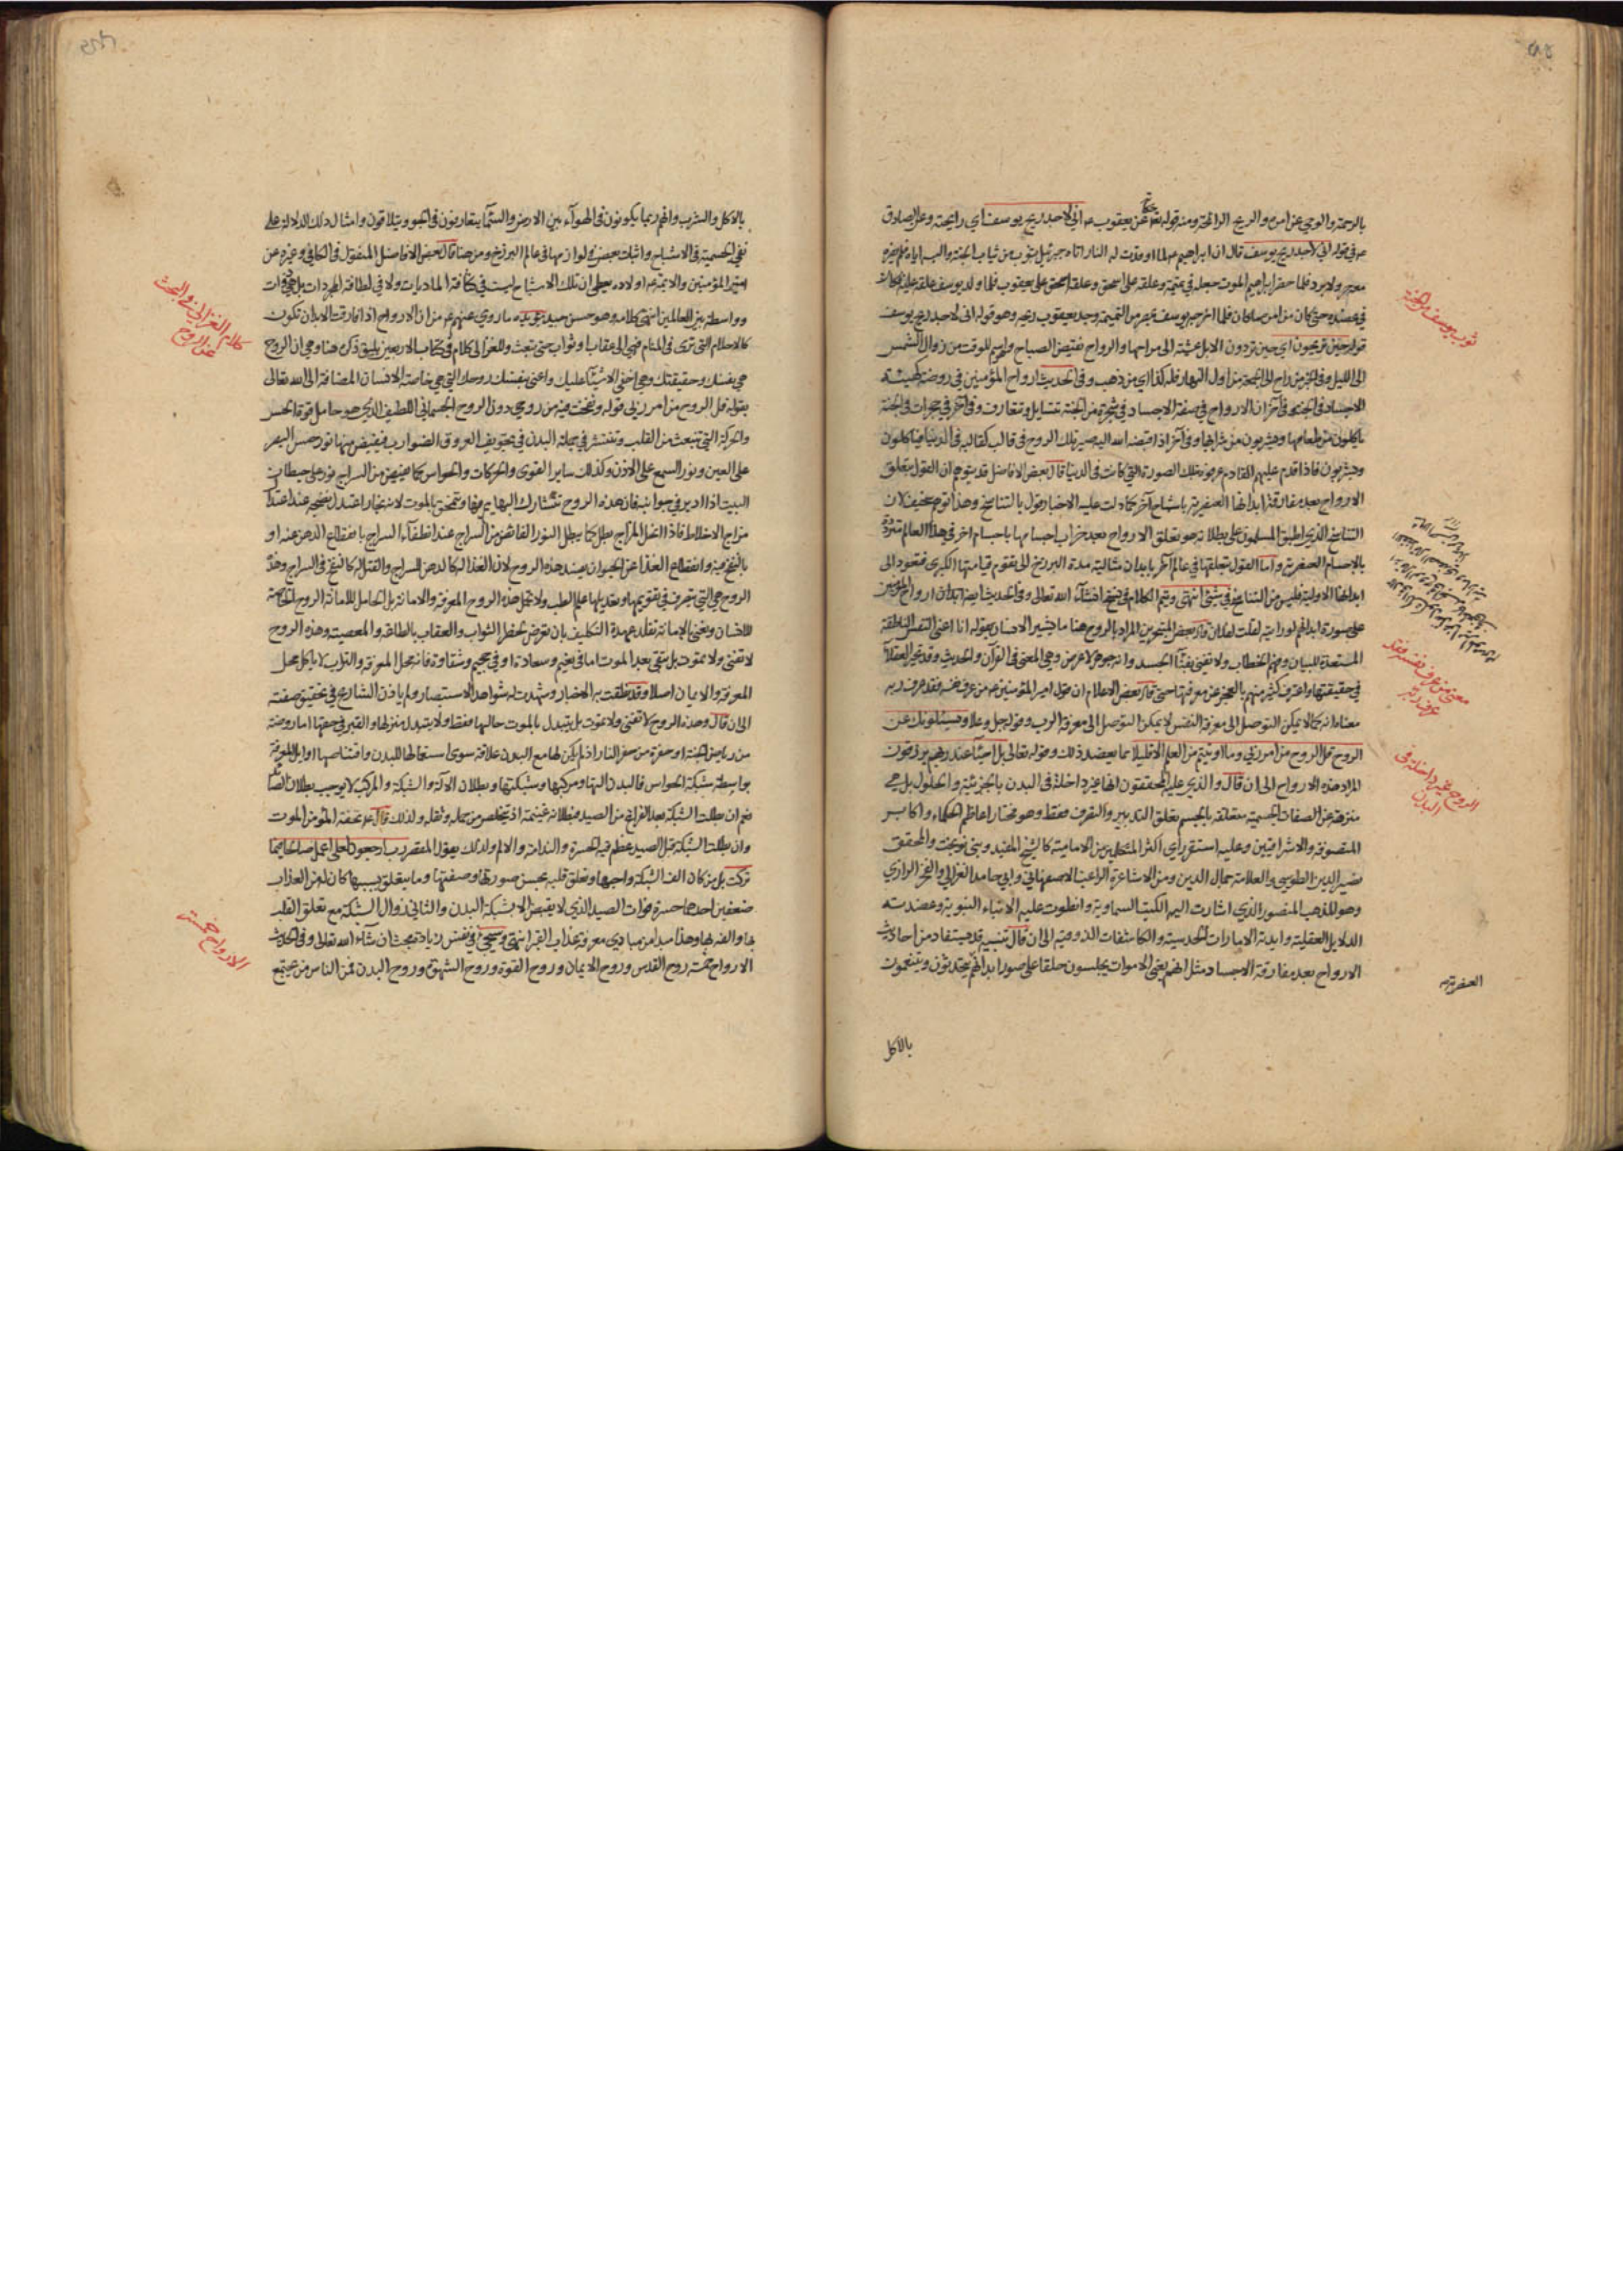 بالرحمة والوحي عن امره والريح الرائحة ومنه قوله تع حكاية عن يعقوب ع اني لاجد ريح يوسف اي رايحته وعن الصادق
ع في قوله اني لاجد ريح يوسف قال ان ابراهيم ع لما اوقدت له النار اتاه جبرئيل بثوب من ثياب الجنة والبسه اياه فلم يضره
معه حر ولا برد فلما حضر ابراهيم الموت جعله في تميمة وعلقه على اسحق وعلقه اسحق على يعقوب فلما ولد يوسف علقه عليه فكان
في عضده حتى كان من امره ما كان فلما اخرجه يوسف بمصر من التميمة وجد يعقوب ريحه وهو قوله اني لاجد ريح يوسف
قوله حين تريحون اي حين تردون الابل عشية الى مراحها والرواح نقيض الصباح واسم للوقت من زوال الشمس
الى الليل وفي الخبر من راح الى الجمعة من اول النهار فله كذا اي من ذهب وفي الحديث ارواح المؤمنين في روضة كهيئة
الاجساد في الجنة وفي آخر ان الارواح في صفة الاجساد في شجرة من الجنة تتسايل وتتعارف وفي آخر في حجرات في الجنة
ياكلون من طعامها ويشربون من شرابها وفي آخر اذا قبضه الله اليه صير تلك الروح في قالب كقالبه في الدنيا فياكلون
ويشربون فاذا قدم عليهم القادم عرفوه بتلك الصورة التي كانت في الدنيا قال بعض الافاضل قد يتوهم ان القول بتعلق
الارواح بعد مفارقة ابدانها العنصرية باشباح آخر كما دلت عليه الاخبار قول بالتناسخ وهذا توهم سخيف لان
التناسخ الذي اطبق المسلمون على بطلانه هو تعلق الارواح بعد خراب اجسامها باجسام اخر في هذا العالم متردده
بالاجسام العنصرية واما القول بتعلقها في عالم آخر بابدان مثالية مدة البرزخ الى تقوم قيامتها الكبرى فتعود الى
ابدانها الاولية فليس من التناسخ في شئ انتهى ويتم الكلام في نسخ انشاء الله تعالى وفي الحديث ايضا ابدان ارواح المؤمنين
على صورة ابدانهم لو رايته لقلت فلان قال بعض المتبحرين المراد بالروح هنا ما يشير الانسان بقوله انا اعني النفس الناطقة
المستعدة للبيان وفهم الخطاب ولا تفنى بفناء الجسد وانه جوهر لا عرض وهي المعنى في القرآن والحديث وقد تحير العقلاء
في حقيقتها واعترف كثير منهم بالعجز عن معرفتها حتى قال بعض الاعلام ان قول امير المؤمنين ع من عرف نفسه فقد عرف ربه
معناه انه كما لا يمكن التوصل الى معرفة النفس لا يمكن التوصل الى معرفة الرب وقوله جل وعلا ويسئلونك عن
الروح قل الروح من امر ربي وما اوتيتم من العلم الا قليلا مما يعضد ذلك وقوله تعالى بل احياء عند ربهم يرزقون
المراد هذه الارواح الى ان قال والذي عليه المحققون انها غير داخلة في البدن بالجزئية والحلول بل هي
منزهة عن الصفات الجسمية متعلقة بالجسم تعلق التدبير والتصرف فقط وهو مختار اعاظم الحكماء واكابر
المتصوفة والاشراقيين وعليه استقر رأي اكثر المتكلمين من الامامية كالشيخ المفيد وبني نوبخت والمحقق
نصير الدين الطوسي والعلامة جمال الدين ومن الاشاعرة الراغب الاصفهاني وابي حامد الغزالي والفخر الرازي
وهو المذهب المنصور الذي اشارت اليه الكتب السماوية وانطوت عليه الانباء النبوية وعضدته
الدلايل العقلية وايدته الامارات الحدسية والكاشفات الذوقية الى ان قال تنبيه قد يستفاد من احاديث
الارواح بعد مفارقة الاجساد مثل انهم يعني الاموات يجلسون حلقا على صور ابدانهم يتحدثون ويتنعمون
بالاكل
ثوب يوسف من الجنة
معنى من عرف نفسه فقد
عرف ربه
الروح غير داخلة في
البدن
العنصرية
بالاكل والشرب وانهم ربما يكونون في الهوآء بين الارض والسماء يتعارفون في الجو ويتلاقون وامثال ذلك الدلالة على
نفي الجسمية في الاشباح واثبات بعض لوازمها في عالم البرزخ ومن هنا قال بعض الافاضل المنقول في الكافي وغيره عن
امير المؤمنين والائمة من اولاده يعطي ان تلك الاشباح ليست في كثافة الماديات ولا في لطافة المجردات بل هي ذات
وواسطة بين العالمين انتهى كلامه وهو حسن جيد يؤيده ما روي عنهم ع من ان الارواح اذا فارقت الابدان تكون
كالاحلام التي ترى في المنام فهي الى عقاب وثواب حتى تبعث وللغزالي كلام في كتاب الاربعين يليق ذكره هنا وهي ان الروح
هي نفسك وحقيقتك وهي اخفى الاشياء عليك واعني بنفسك روحك التي هي خاصة الانسان المضافة الى الله تعالى
بقوله قل الروح من امر ربي قوله ونفخت فيه من روحي دون الروح الجسماني اللطيف الذي هو حامل قوة الحس
والحركة التي تنبعث من القلب وتنتشر في جملة البدن في تجويف العروق الضوارب فيفيض منها نور حس البصر
على العين ونور السمع على الاذن وكذلك ساير القوى والحركات والحواس كما يفيض من السراج نور على حيطان
البيت اذا ادير في جوانبه فان هذه الروح تتشارك البهايم فيها وتنمحق بالموت لانه بخار اعتدل نضجه عند اعتدال
مزاج الاخلاط فاذا انحل المزاج بطل كما يبطل النور الفائض من السراج عند انطفآء السراج بانقطاع الدهن عنه او
بالنفخ فيه وانقطاع الغذاء عن الحيوان يفسد هذه الروح لان الغذاء له كالدهن للسراج والقتل له كالنفخ في السراج وهذه
الروح هي التي يتصرف في تقويمها وتعديلها علم الطب ولا تحمل هذه الروح المعرفة والامانة بل الحامل للامانة الروح الخاصة
للانسان ونعني بالامانة تقلد عهدة التكليف بان تعرض لخطر الثواب والعقاب بالطاعة والمعصية وهذه الروح
لا تفنى ولا تموت بل تبقى بعد الموت اما في نعيم وسعادة او في جحيم وشقاوة فانه محل المعرفة والتراب لا ياكل محل
المعرفة والايمان اصلا وقد نطقت به الاخبار وشهدت له شواهد الاستبصار ولم ياذن الشارع في تحقيق صفته
الى ان قال وهذه الروح لا تفنى ولا تموت بل يتبدل بالموت حالها فقط ولا يتبدل منزلها والقبر في حقها اما روضة
من رياض الجنة او حفرة من حفر النار اذ لم يكن لها مع البدن علاقة سوى استعمالها للبدن واقتناصها اوايل المعرفة
بواسطة شبكة الحواس فالبدن آلتها ومركبها وشبكتها وبطلان الآلة والشبكة والمركب لا يوجب بطلان الصائد
نعم ان بطلت الشبكة بعد الفراغ من الصيد فبطلانه غنيمة اذ يتخلص من حمله وثقله ولذلك قال ع تحفة المؤمن الموت
وان بطلت الشبكة قبل الصيد عظم فيه الحسرة والندامة والالم ولذلك يقول المقصر رب ارجعون لعلى اعمل صالحا فيما
تركت بل من كان الف الشبكة واحبها وتعلق قلبه بحسن صورتها وصنعتها وما يتعلق بسببها كان له من العذاب
ضعفين احدهما حسرة فوات الصيد الذي لا يقبض الا بشبكة البدن والثاني زوال الشبكة مع تعلق القلب
بها والفه لها وهذا مبدا من مبادي معرفة عذاب القبر انتهى وسيجئ في نفس زيادة بحث ان شآء الله تعالى وفي الحديث
الارواح خمسة روح القدس وروح الايمان وروح القوة وروح الشهوة وروح البدن فمن الناس من يجتمع
كلام الغزالي في البحث
عن الروح
الارواح خمسة